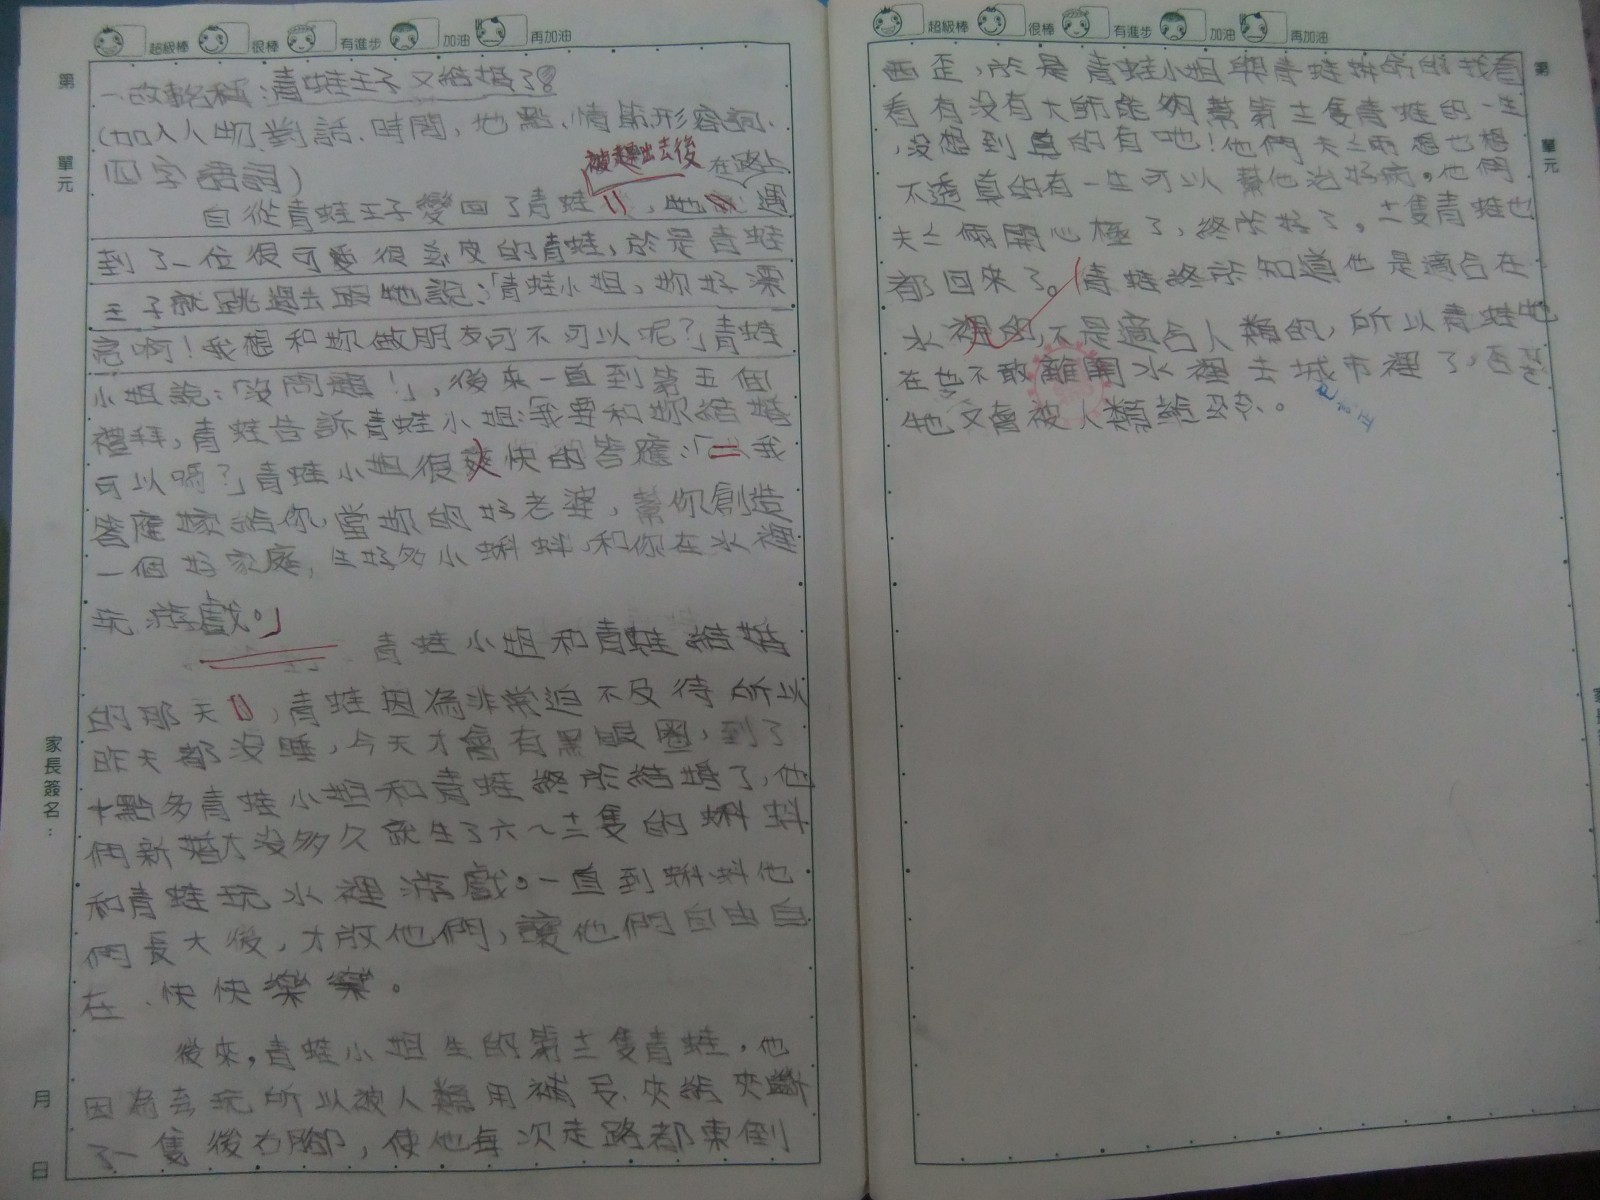 超級棒 很棒 有進步 加油 再加油
第 單元
一、故事名稱:青蛙王子又結婚了
(加入人物對話、時間、地點、情節形容詞、
四字語詞)
被趕出去後 在路上
自從青蛙王子變回了青蛙,他遇
到了一位很可愛很調皮的青蛙,於是青蛙
王子就跳過去跟牠說:「青蛙小姐,妳好漂
亮啊!我想和妳做朋友可不可以呢?」青蛙
小姐說:「沒問題!」,後來一直到第五個
禮拜,青蛙告訴青蛙小姐:「我要和妳結婚
可以嗎?」青蛙小姐很爽快的答應:「我
答應嫁給你,當妳的好老婆,幫你創造
一個好家庭,生好多小蝌蚪,和你在水裡
玩游戲。」
青蛙小姐和青蛙結婚
的那天,青蛙因為非常迫不及待所以
昨天都沒睡,今天才會有黑眼圈,到了
十點多青蛙小姐和青蛙終於結婚了,他
們新婚才沒多久就生了六~十二隻的蝌蚪
和青蛙玩水裡游戲。一直到蝌蚪他
們長大後,才放他們,讓他們自由自
在、快快樂樂。
後來,青蛙小姐生的第十二隻青蛙,他
因為去玩所以被人類用 夾 夾斷
了一隻後右腳,使他每次走路都東倒
家長簽名:
月
日
超級棒 很棒 有進步 加油 再加油
第 單元
西歪,於是青蛙小姐與青蛙拼命的找看
看有沒有大師能夠幫第十二隻青蛙的一生
,沒想到真的有吔!他們夫妻兩想也想
不透真的有一生可以幫他治好病。他們
夫妻倆開心極了,終於好了。十二隻青蛙也
都回來了。青蛙終於知道他是適合在
水裡的,不是適合人類的,所以青蛙他
在也不敢離開水裡去城市裡了,否則
牠又會被人類